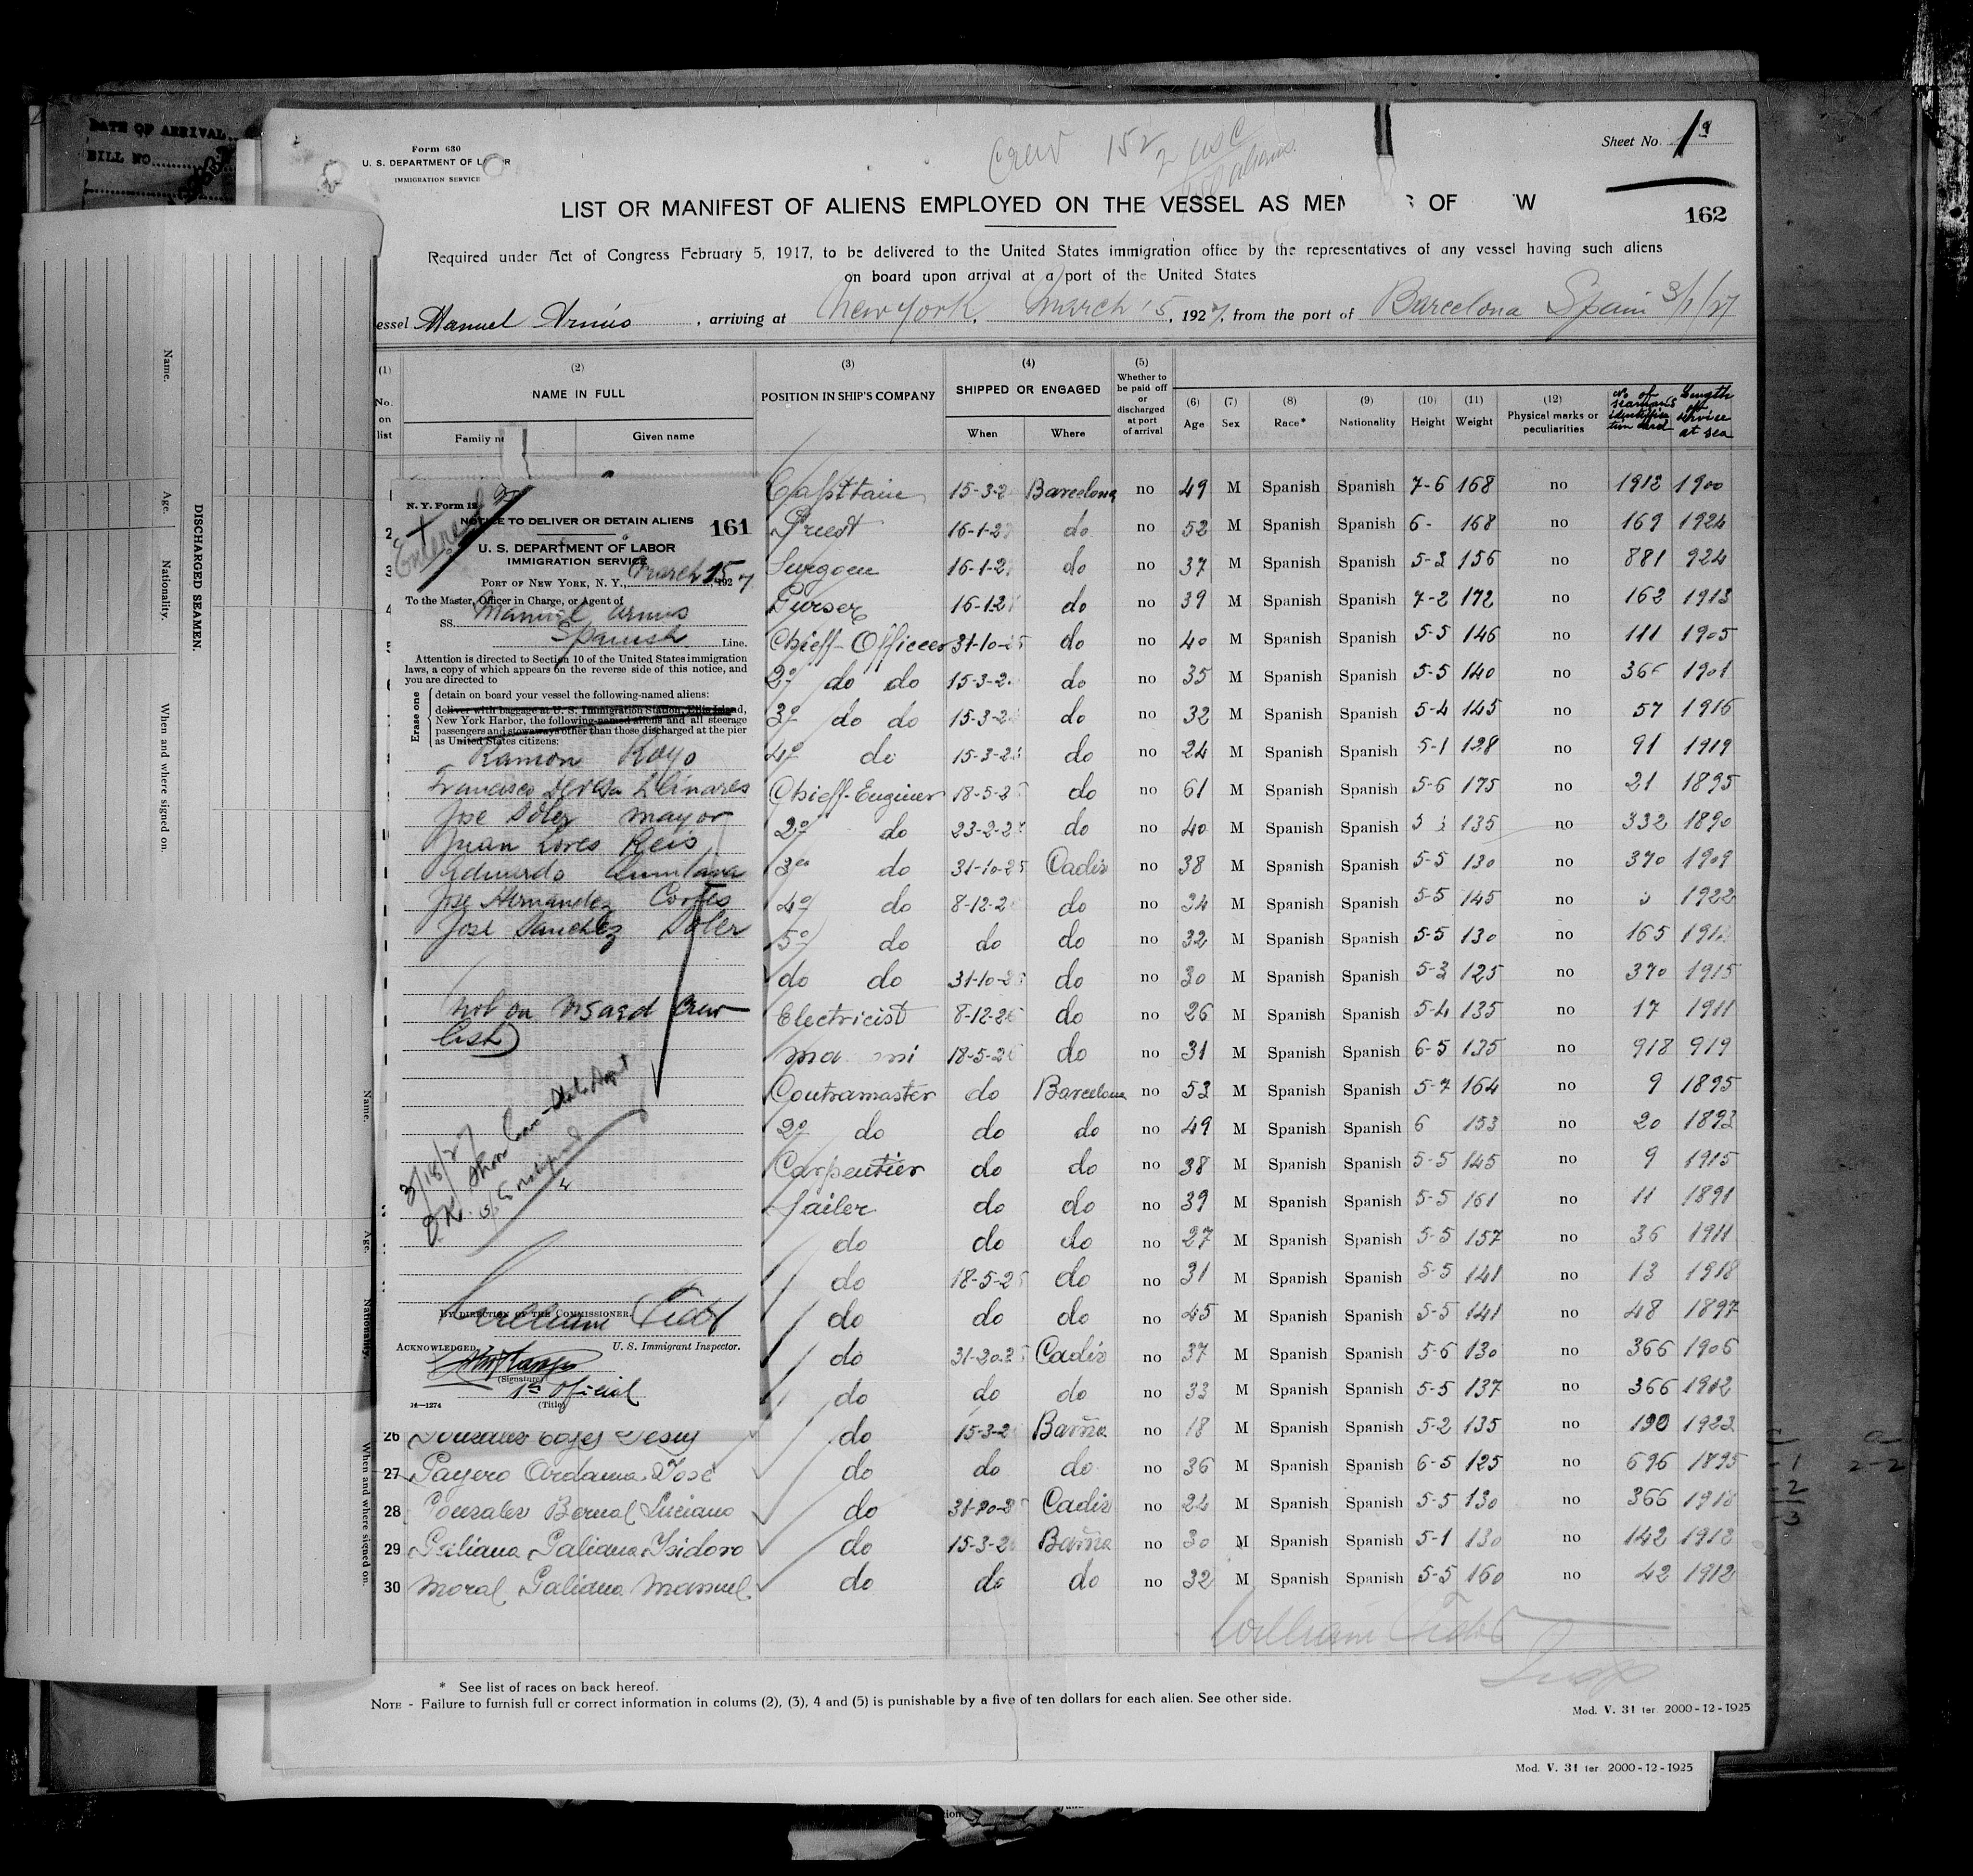 DATE OF ARRIVAL
BILL NO.
Form 680
U. S. DEPARTMENT OF LABOR
IMMIGRATION SERVICE
Crew 152
2 usc
150 aliens
Sheet No. 1
162
LIST OR MANIFEST OF ALIENS EMPLOYED ON THE VESSEL AS MEM S OF W
Required under Act of Congress February 5, 1917, to be delivered to the United States immigration office by the representatives of any vessel having such aliens
on board upon arrival at a port of the United States
essel Manuel Arnús, arriving at New York, March 15, 1927, from the port of Barcelona Spain 3/1/27
(1) No. on list
(2) NAME IN FULL
Given name
(3) POSITION IN SHIP'S COMPANY
(4) SHIPPED OR ENGAGED
When Where
(5) Whether to be paid off or discharged at port of arrival
(6) Age
(7) Sex
(8) Race*
(9) Nationality
(10) Height
(11) Weight
(12) Physical marks or peculiarities
No of seaman's identification card
Length of service at sea
Capttain 15-3-2 Barcelona no 49 M Spanish Spanish 7-6 168 no 1912 1900
2 Priest 16-1-2 do no 52 M Spanish Spanish 6- 168 no 169 1924
3 Surgoen 16-1-2 do no 37 M Spanish Spanish 5-3 156 no 881 924
4 Purser 16-12 do no 39 M Spanish Spanish 7-2 172 no 162 1913
Chieff-Officer 31-10-25 do no 40 M Spanish Spanish 5-5 146 no 111 1905
2º do do 15-3-2 do no 35 M Spanish Spanish 5-5 140 no 366 1901
3º do do 15-3-2 do no 32 M Spanish Spanish 5-4 145 no 57 1916
4º do 15-3-2 do no 24 M Spanish Spanish 5-1 128 no 91 1919
Chieff-Enginer 18-5-2 do no 61 M Spanish Spanish 5-6 175 no 21 1895
2º do 23-2-2 do no 40 M Spanish Spanish 135 no 332 1890
3er do 31-10-25 Cadiz no 38 M Spanish Spanish 5-5 130 no 370 1909
4º do 8-12-2 do no 34 M Spanish Spanish 5-5 145 no 1922
5º do do do no 32 M Spanish Spanish 5-5 130 no 165
do do 31-10-25 do no 30 M Spanish Spanish 5-3 125 no 370 1915
Electricist 8-12-26 do no 26 M Spanish Spanish 5-4 135 no 17 1911
18-5-26 do no 31 M Spanish Spanish 6-5 135 no 918 919
Contramaster do Barcelona no 53 M Spanish Spanish 5-7 164 no 9 1895
2º do do do no 49 M Spanish Spanish 6 153 no 20 1893
Carpentier do do no 38 M Spanish Spanish 5-5 145 no 9 1915
Sailer do do no 39 M Spanish Spanish 5-5 161 no 11 1891
do do do no 27 M Spanish Spanish 5-5 157 no 36 1911
do 18-5-2 do no 31 M Spanish Spanish 5-5 141 no 13 1918
do do do no 45 M Spanish Spanish 5-5 141 no 48 1897
do 31-20-25 Cadiz no 37 M Spanish Spanish 5-6 130 no 366 1906
do do do no 33 M Spanish Spanish 5-5 137 no 366 1902
26 do 15-3-2 Barña no 18 M Spanish Spanish 5-2 135 no 190 1923
27 Payero Ardama José do do do no 36 M Spanish Spanish 6-5 125 no 696 1895
28 Gonzalez Bernal Luciano do 31-20-25 Cadiz no 22 M Spanish Spanish 5-5 130 no 366 1918
29 Galiana Galiana Isidoro do 15-3-2 Barña no 30 M Spanish Spanish 5-1 130 no 142 1912
30 Moral Galiana Manuel do do do no 32 M Spanish Spanish 5-5 160 no 42 1912
* See list of races on back hereof.
NOTE - Failure to furnish full or correct information in colums (2), (3), 4 and (5) is punishable by a five of ten dollars for each alien. See other side.
Mod. V. 31 ter. 2000-12-1925
Mod. V. 31 ter. 2000-12-1925
N. Y. Form 1
Entered
NOTICE TO DELIVER OR DETAIN ALIENS 161
U. S. DEPARTMENT OF LABOR
IMMIGRATION SERVICE
PORT OF NEW YORK, N. Y., March 15, 1927
To the Master, Officer in Charge, or Agent of
SS. Manuel Arnus
Spanish Line.
Attention is directed to Section 10 of the United States immigration
laws, a copy of which appears on the reverse side of this notice, and
you are directed to
Erase one
detain on board your vessel the following-named aliens:
deliver with baggage at U. S. Immigration Station, Ellis Island,
New York Harbor, the following-named aliens and all steerage
passengers and stowaways other than those discharged at the pier
as United States citizens:
Ramon Royo
Francisco Devesa Llinares
Jose Soler Mayor
Juan Lores Reis
Eduardo Quintana
Jose Hernandez Cortes
Jose Sanchez Soler
not on visaed crew
list)
3/18/27
BY DIRECTION OF THE COMMISSIONER.
William
U. S. Immigrant Inspector.
ACKNOWLEDGED:
(Signature)
1er Oficial
(Title)
14—1274
DISCHARGED SEAMEN.
Name. Age. Nationality. When and where signed on.
Name. Age. Nationality. When and where signed on.